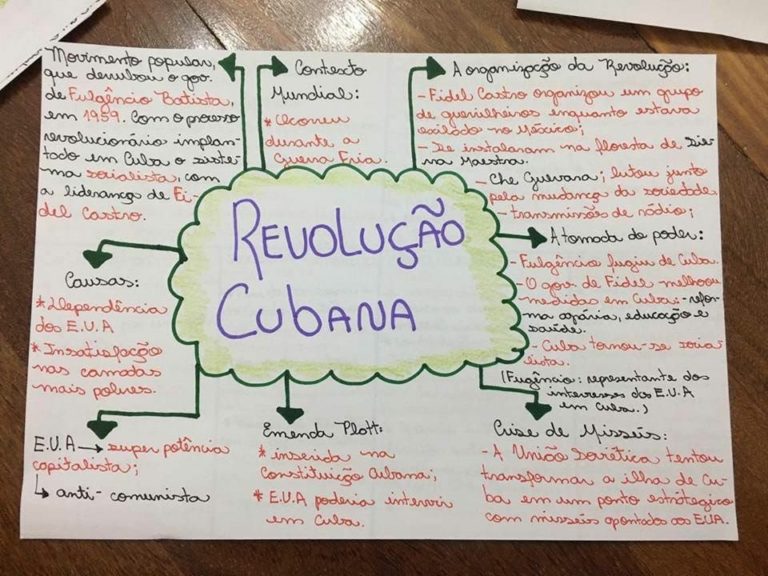 Movimento popular,
que derrubou o gov.
de Fulgêncio Batista,
em 1959. Com o processo
revolucionário implan-
tado em Cuba o siste-
ma socialista, com
a liderança de Fi-
del Castro.
Contexto
Mundial:
* Ocorreu
durante a
Guerra Fria.
A organização da Revolução:
- Fidel Castro organizou um grupo
de guerilheiros enquanto estava
exilado no México;
- Se instalaram na floresta de Sier-
ra Maestra.
- Che Guevara; lutou junto
pela mudança da sociedade.
- transmissões de rádio;
REVOLUÇÃO
CUBANA
A tomada do poder:
- Fulgêncio fugiu de Cuba.
- O gov. de Fidel melhorou
medidas em Cuba: - refor-
ma agrária, educação e
saúde.
- Cuba tornou-se socia-
lista.
(Fugêncio: representante dos
interesses dos E.U.A
em Cuba.)
Causas:
* Dependência
dos E.U.A
* Insatisfação
nas camadas
mais pobres.
E.U.A → super potência
capitalista;
↳ anti-comunista
Emenda Platt:
* inserida na
Constituição Cubana;
* E.U.A poderia intervir
em Cuba.
Crise de Misseís:
- A União Soviética tentou
transformar a ilha de Cu-
ba em um ponto estratégico
com misseís apontados aos EUA.